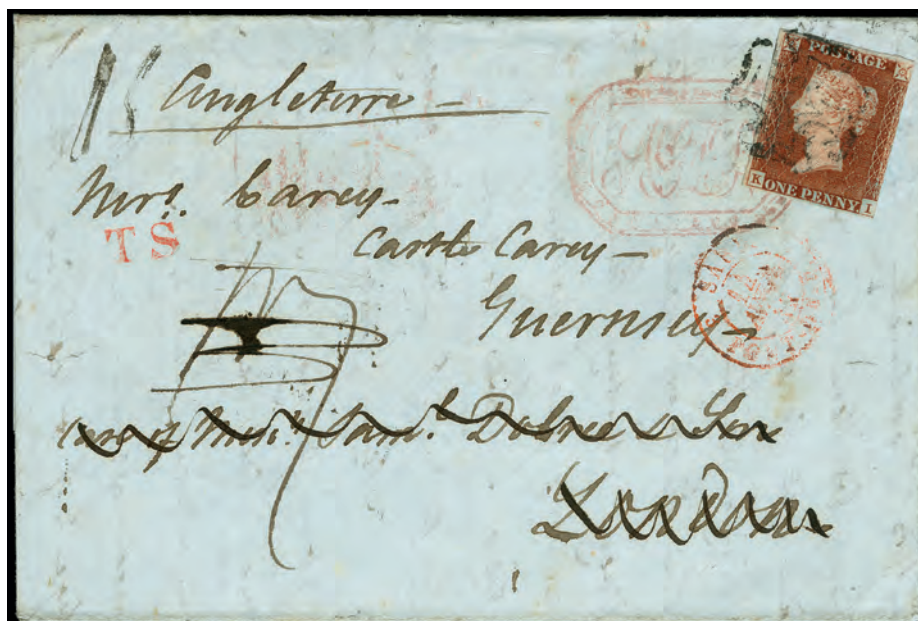 Angleterre –
POSTAGE
K ONE PENNY I
Mrs. Carey –
TS
Castle Carey –
Guernsey –
care of Messrs. Saml. Dobree & Son
London